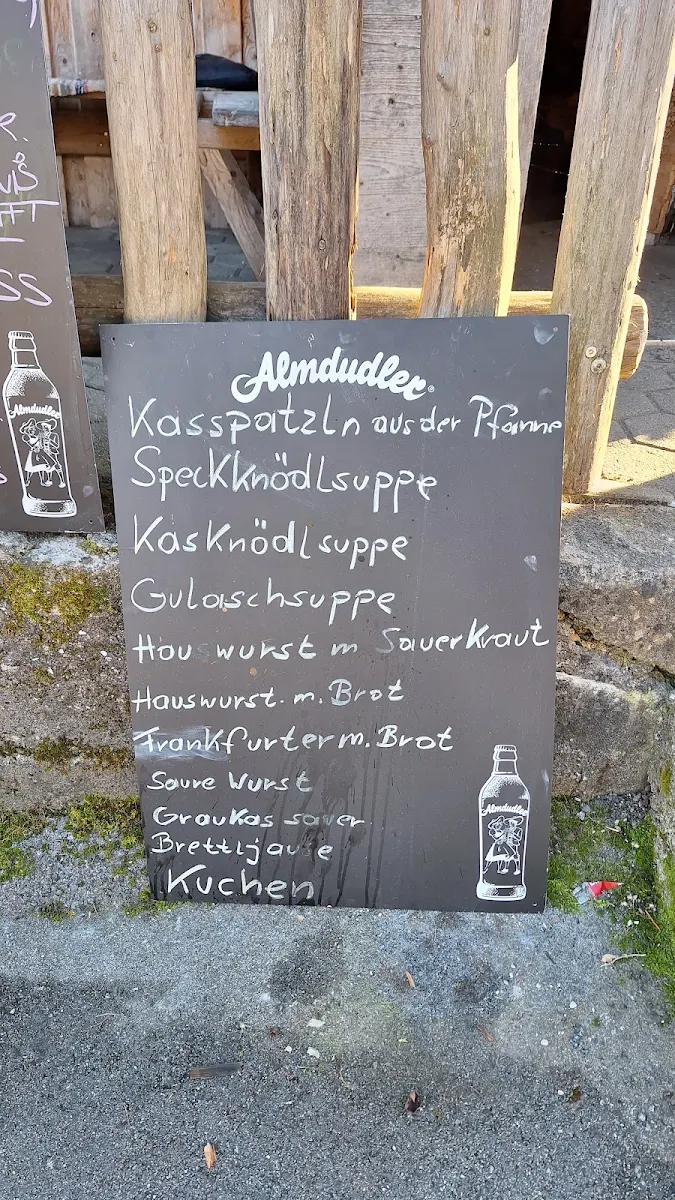 Almdudler®
Kasspatzln aus der Pfanne
Speckknödlsuppe
Kasknödlsuppe
Gulaschsuppe
Hauswurst m Sauerkraut
Hauswurst. m. Brot
Frankfurter m. Brot
Saure Wurst
Graukas sauer
Brettljause
Kuchen
Almdudler
Almdudler